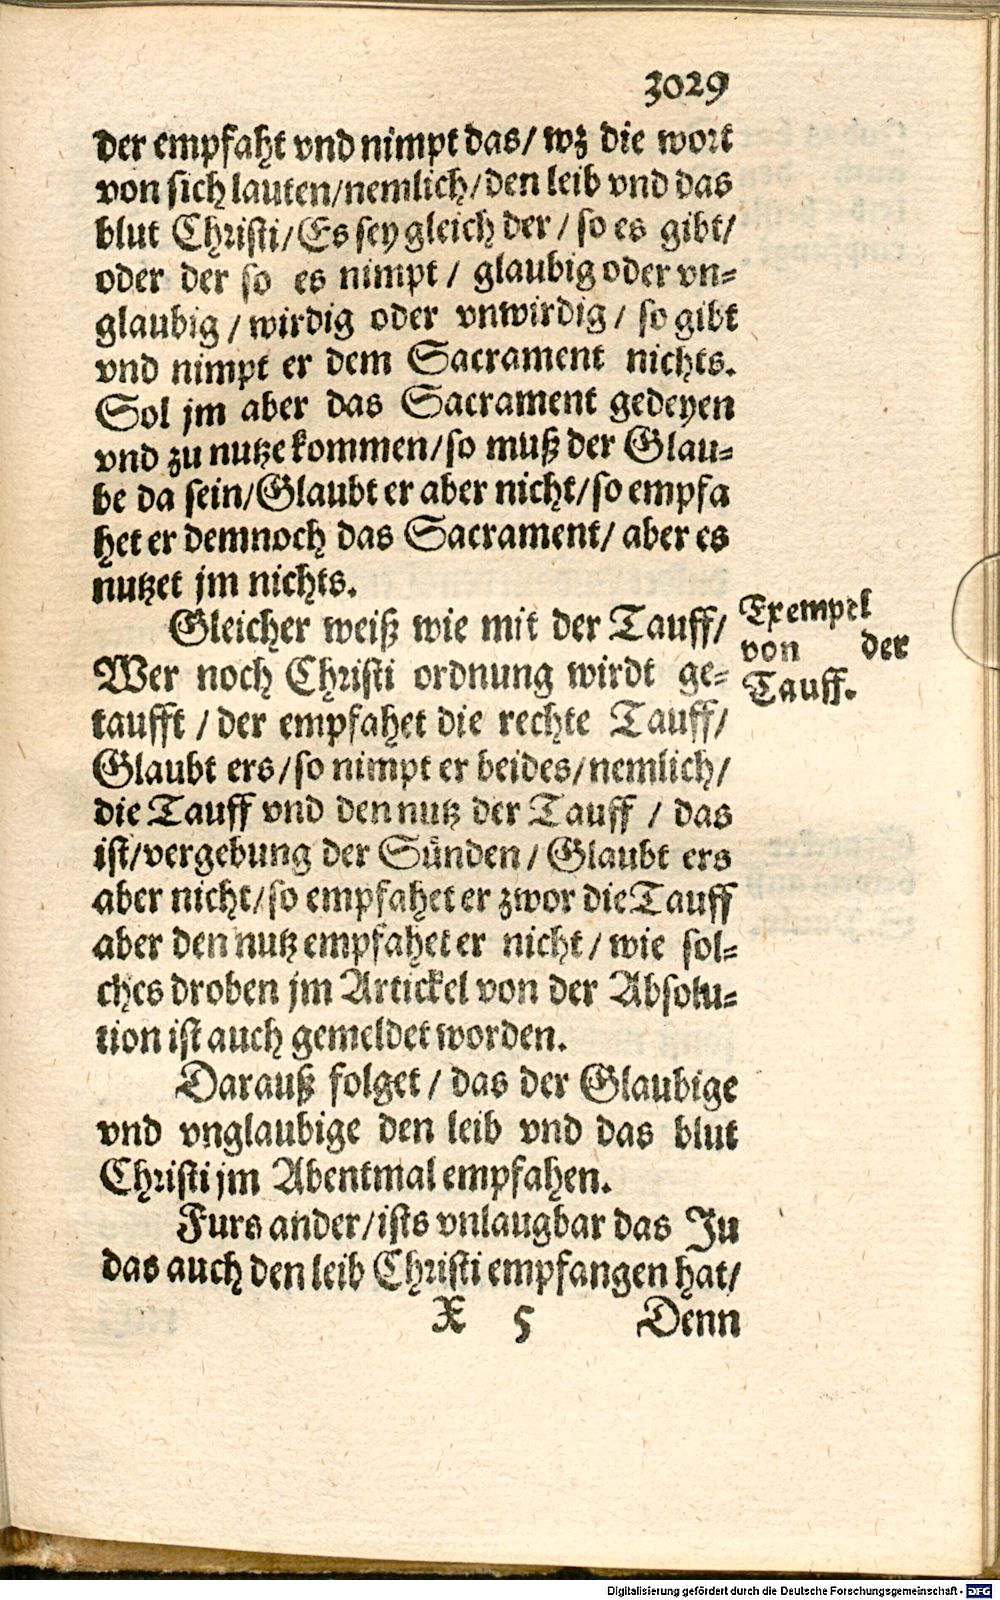 3029
der empfaht vnd nimpt das/ wz die wort
von sich lauten/nemlich/den leib vnd das
blut Christi/Es sey gleich der/ so es gibt/
oder der so es nimpt/ glaubig oder vn-
glaubig/wirdig oder vnwirdig/ so gibt
vnd nimpt er dem Sacrament nichts.
Sol jm aber das Sacrament gedeyen
vnd zu nutze kommen/so muß der Glau-
be da sein/Glaubt er aber nicht/so empfa
het er demnoch das Sacrament/ aber es
nutzet jm nichts.
Gleicher weiß wie mit der Tauff/
Wer noch Christi ordnung wirdt ge-
taufft/der empfahet die rechte Tauff/
Glaubt ers/so nimpt er beides/nemlich/
die Tauff vnd den nutz der Tauff/ das
ist/vergebung der Sünden/Glaubt ers
aber nicht/so empfahet er zwor die Tauff
aber den nutz empfahet er nicht/wie sol-
ches droben jm Artickel von der Absolu-
tion ist auch gemeldet worden.
Darauß folget/das der Glaubige
vnd vnglaubige den leib vnd das blut
Christi jm Abentmal empfahen.
Furs ander/ists vnlaugbar das Ju
das auch den leib Christi empfangen hat/
X 5 Denn
Exempel
von der
Tauff.
Digitalisierung gefördert durch die Deutsche Forschungsgemeinschaft - DFG